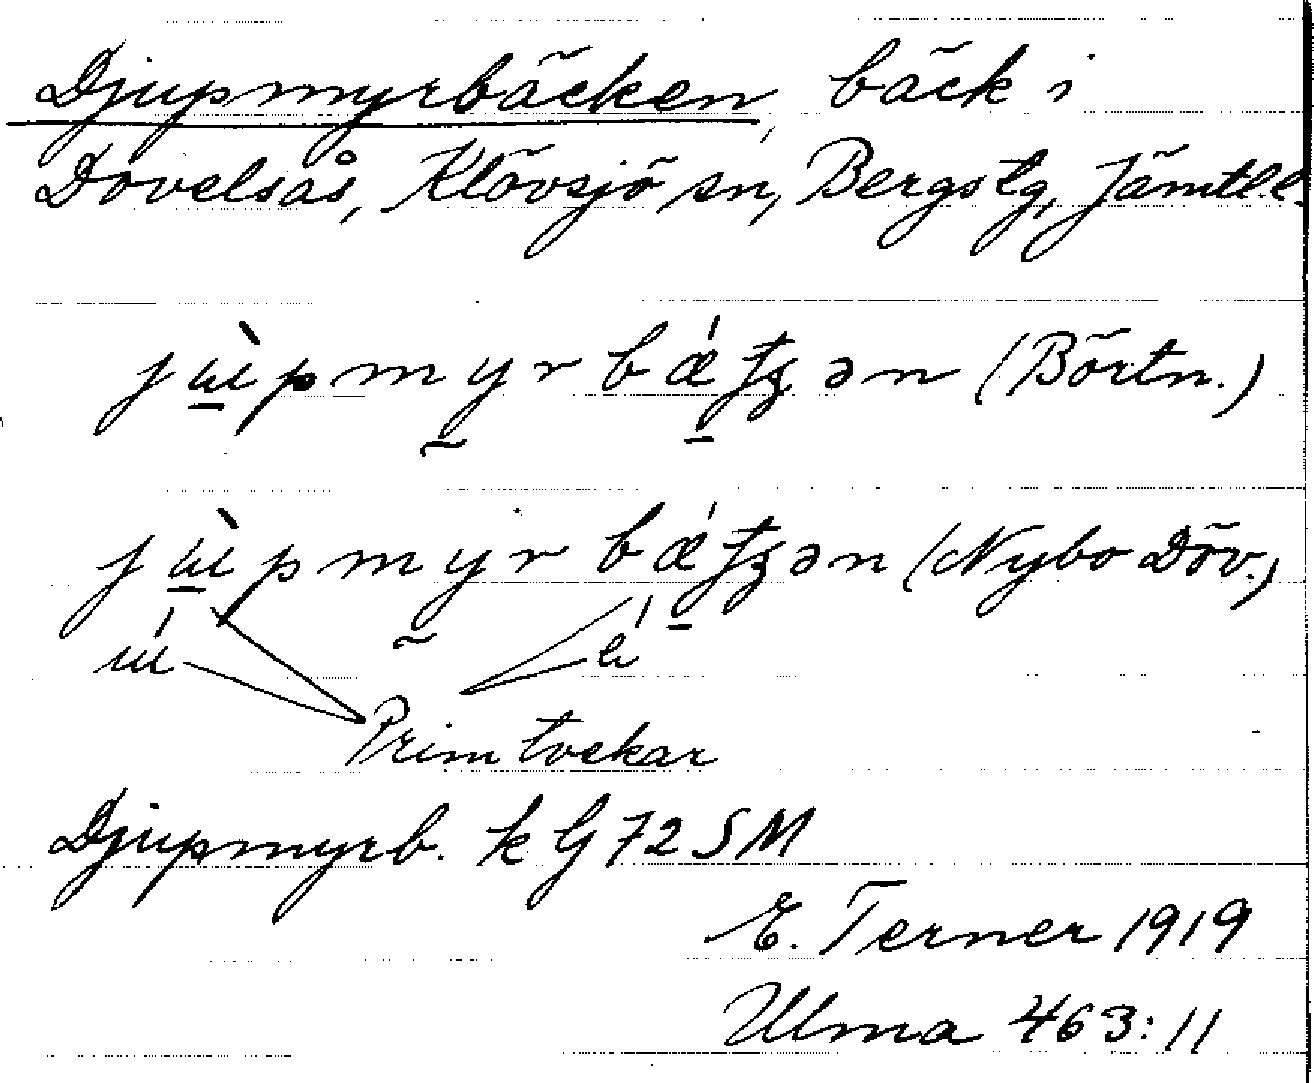 Djupmyrbäcken, bäck i
Dövelsås, Klövsjö sn, Bergs tg, Jämtl.l.
(Börtn.)
(Nybo Döv.)
Prim tvekar
Djupmyrb. k G 72 SM
E. Terner 1919
Ulma 463:11